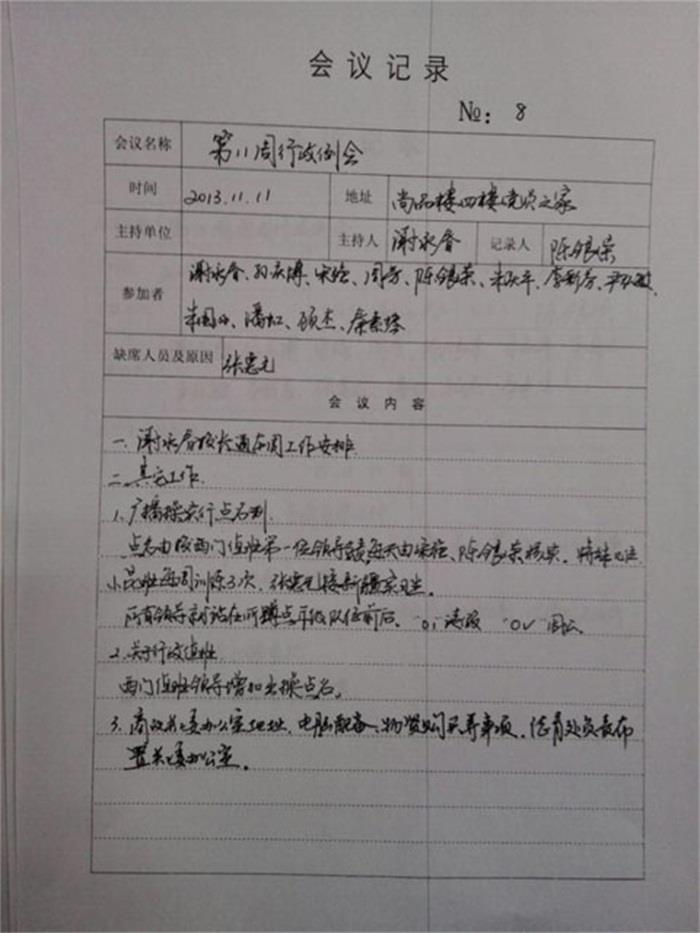 会议记录
№: 8
会议名称 第11周行政例会
时间 2013.11.11 地址 尚品楼四楼党员之家
主持单位 主持人 谢永香 记录人 陈银荣
参加者 谢永香、孙庆博、宋玲、周芳、陈银荣、朱跃平、李新芳、尹
朱国、潘虹、顾杰、秦素
缺席人员及原因 张忠元
会议内容
一、谢永香校长通布周工作安排
二、其它工作
1、广播操实行点名制
点名由校西门值班第一位领导 每天由宋玲、陈银荣 特殊
每周训练3次、张忠元接新疆
所有领导站在所蹲点年级队伍前后。
2、关于行政值班
西门值班领导增加出操点名。
3、商议关工委办公室地址、电脑配备、物资购买等事项、德育处负责布
置关工委办公室。